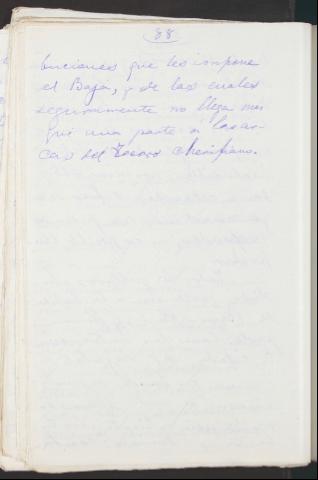 88
buciones que les impone
el Bajá, y de las cuales
seguramente no llega mas
que una parte a las ar-
cas del Tesoro Cherifiano.